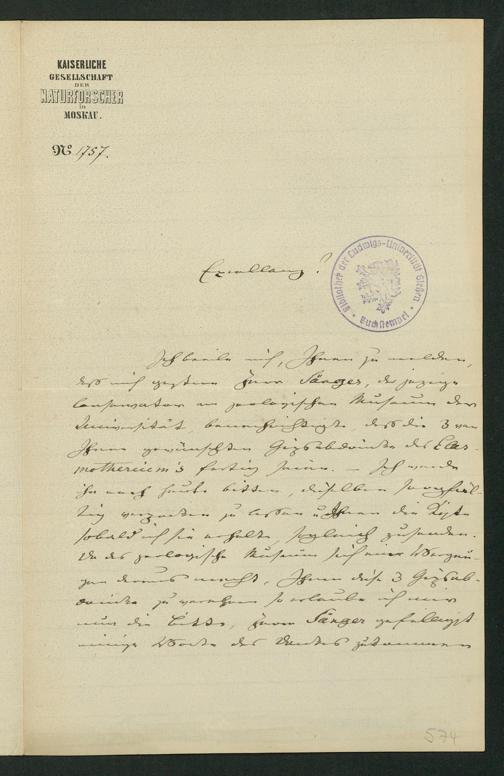 KAISERLICHE
GESELLSCHAFT
DER
NATURFORSCHER
in
MOSKAU.
No 1757.
Bibliothek der Ludwigs-Universität Gießen
Buchstempel
Excellenz!
Ich beeile mich, Ihnen zu melden,
daß mich gestern Herr Sänger, der jezige
Conservator am zoologischen Museum der
Universität, benachrichtigte, daß die 3 von
Ihnen gewünschten Gypsabdrücke des Elas-
motherium's fertig seien. – Ich werde
ihn noch heute bitten, dieselben sorgfäl-
tig verpacken zu lassen u Ihnen die Kiste
sobald ich sie erhalte, sogleich zusenden.
Da das zoologische Museum sich ein Vergnü-
gen daraus macht, Ihnen diese 3 Gypsab-
drücke zu verehren so erlaube ich mir
nur die Bitte, Herrn Sänger gefälligst
einige Worte des Dankes zukommen
574